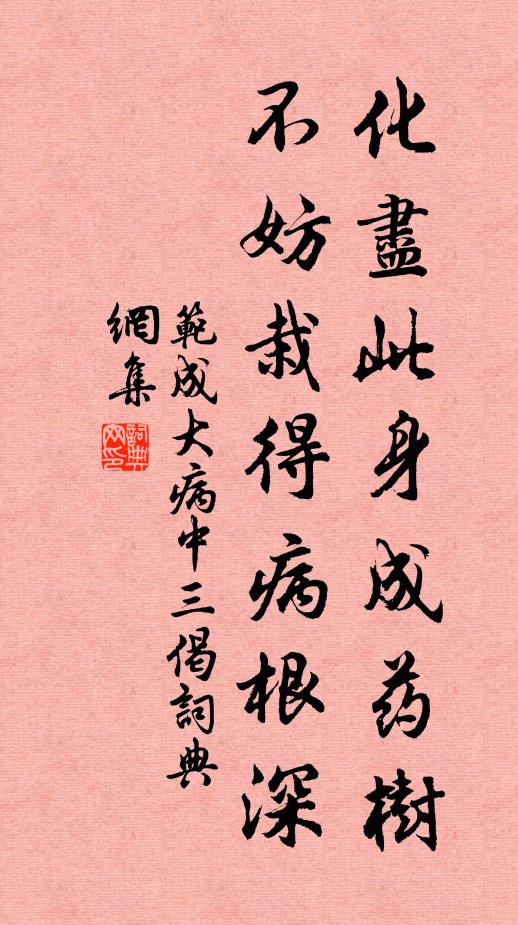 化盡此身成药樹
不妨栽得病根深
範成大病中三偈詞典
網集
詞典
网印